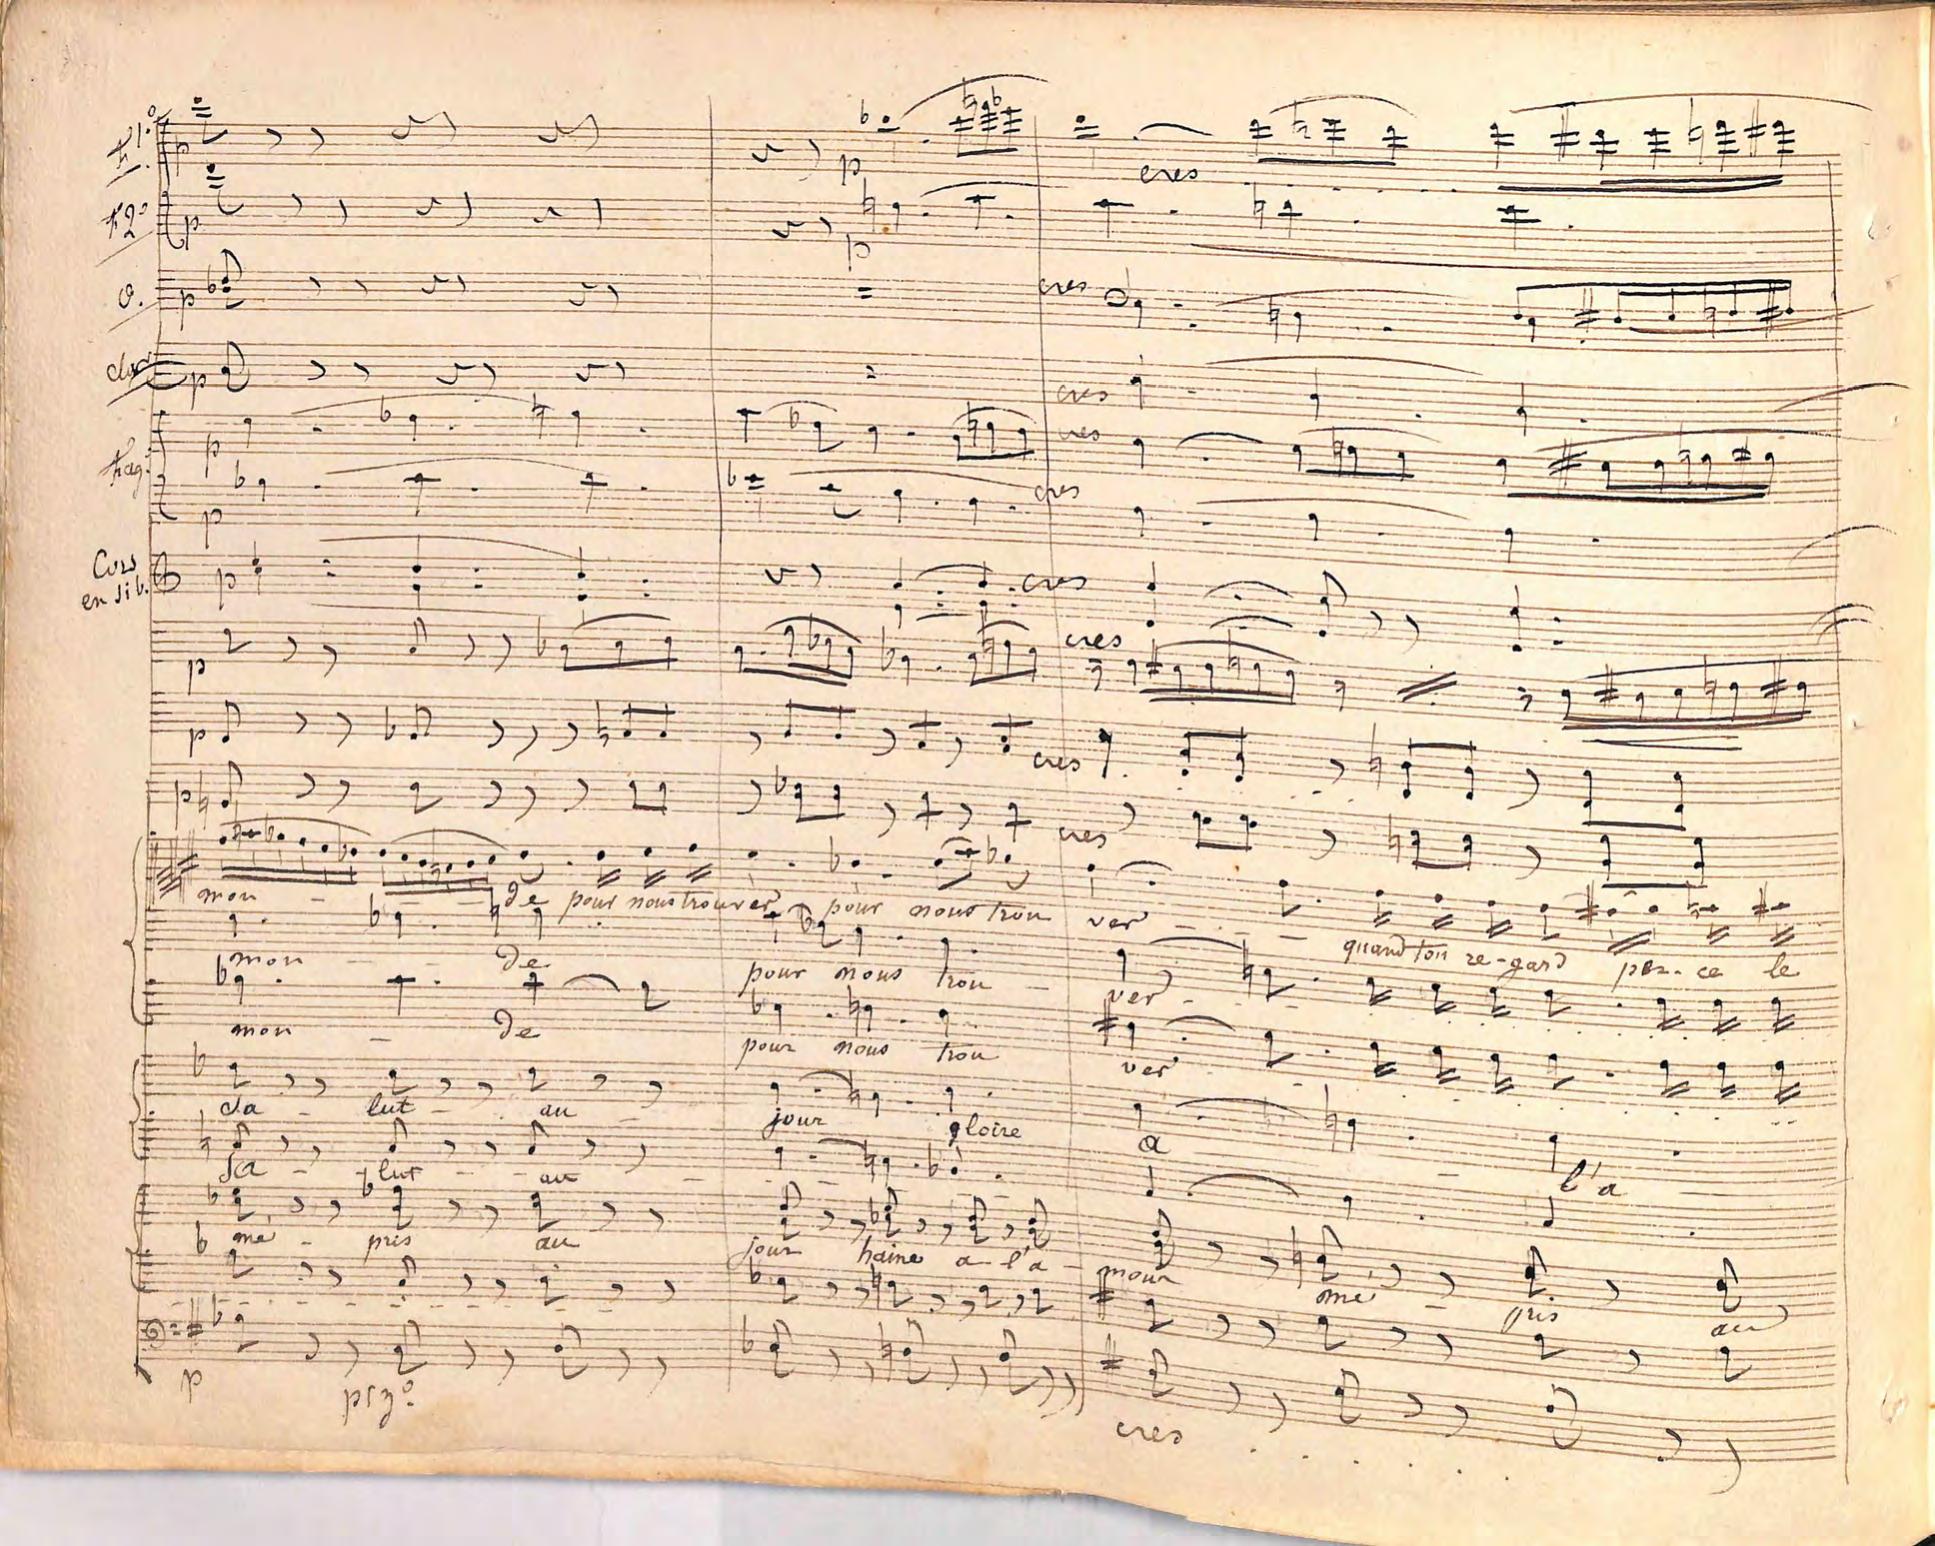 f 1º p
p cres
f 2º p
p
O. p cres
clar p cres
fag: p cres
p cres
Cors en si b. p cres
p cres
p cres
p cres
mon - - de pour nous trouver pour nous trou ver - - - quand ton re-gard per-ce le
mon - - de pour nous trou - ver -
mon - de pour nous trou ver
sa - lut - au jour gloire a - l'a
sa - lut - - au - -
mé - pris au jour haine a l'a - mour mé - pris au
p pizº cres